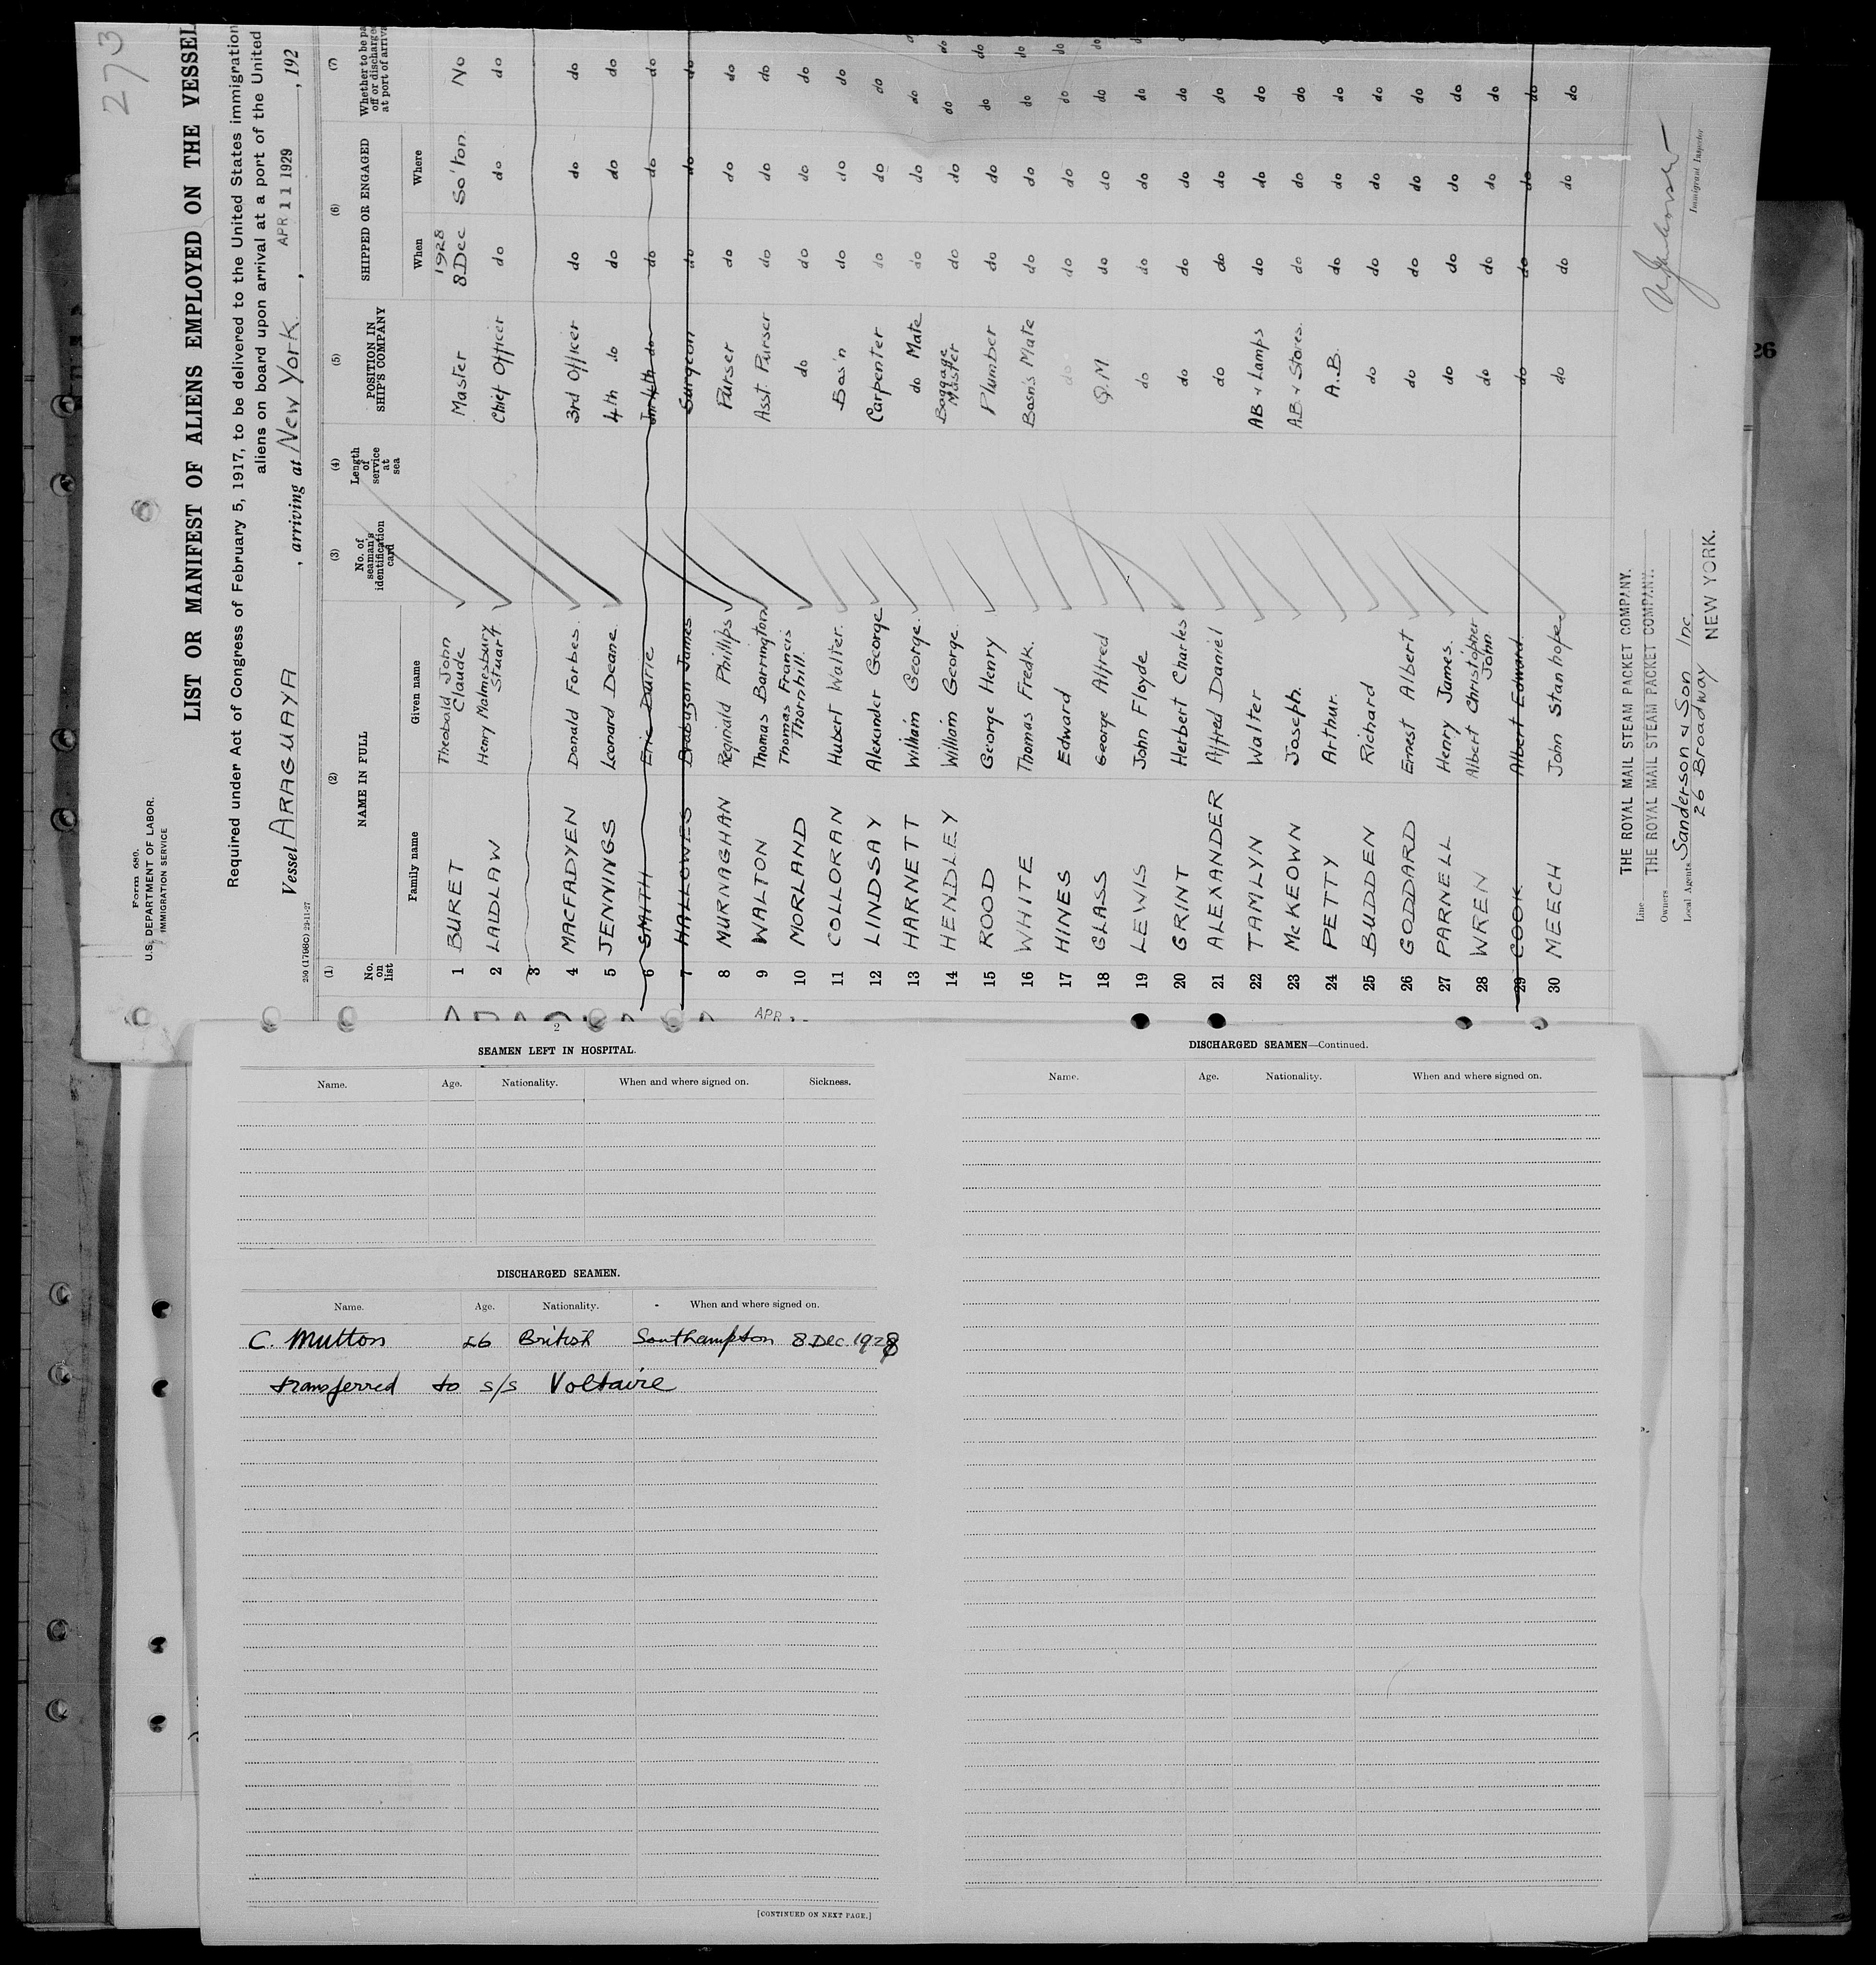 273
Form 680.
U.S. DEPARTMENT OF LABOR.
IMMIGRATION SERVICE
LIST OR MANIFEST OF ALIENS EMPLOYED ON THE VESSEL
Required under Act of Congress of February 5, 1917, to be delivered to the United States immigration
aliens on board upon arrival at a port of the United
Vessel ARAGUAYA, arriving at New York, APR 11 1929, 192
250 (17980) 29-11-27
(1) (2) (3) (4) (5) (6) (7)
No. on list NAME IN FULL No. of seaman's identification card Length of service at sea POSITION IN SHIP'S COMPANY SHIPPED OR ENGAGED Whether to be pa off or discharge at port of arriva
Family name Given name When Where
1 BURET Theobald John Claude Master 1928 8 Dec So'ton No
2 LAIDLAW Henry Malmesbury Stuart Chief Officer do do do
3
4 MACFADYEN Donald Forbes 3rd Officer do do do
5 JENNINGS Leonard Deane 4th do do do do
6 SMITH Eric Durie Jnr 4th do do do do
7 HALLOWES Brabazon James Surgeon do do do
8 MURNAGHAN Reginald Phillips Purser do do do
9 WALTON Thomas Barrington Asst. Purser do do do
10 MORLAND Thomas Francis Thornhill. do do do do
11 COLLORAN Hubert Walter. Bos'n do do do
12 LINDSAY Alexander George Carpenter do do do
13 HARNETT William George. do Mate do do do
14 HENDLEY William George. Baggage Master do do do
15 ROOD George Henry Plumber do do do
16 WHITE Thomas Fredk. Bosn's Mate do do do
17 HINES Edward do do do do
18 GLASS George Alfred Q.M do do do
19 LEWIS John Floyde do do do do
20 GRINT Herbert Charles do do do do
21 ALEXANDER Alfred Daniel do do do do
22 TAMLYN Walter AB & Lamps do do do
23 McKEOWN Joseph. AB & Stores. do do do
24 PETTY Arthur. A.B. do do do
25 BUDDEN Richard do do do do
26 GODDARD Ernest Albert do do do do
27 PARNELL Henry James. do do do do
28 WREN Albert Christopher John do do do do
29 COOK Albert Edward. do do do do
30 MEECH John Stanhope do do do do
Line THE ROYAL MAIL STEAM PACKET COMPANY.
Owners THE ROYAL MAIL STEAM PACKET COMPANY.
Local Agents Sanderson & Son Inc
26 Broadway NEW YORK.
Immigrant Inspector
26
APR
2
SEAMEN LEFT IN HOSPITAL.
Name. Age. Nationality. When and where signed on. Sickness.
DISCHARGED SEAMEN.
Name. Age. Nationality. When and where signed on.
C. Mutton 26 British Southampton 8 Dec. 1928
transferred to s/s Voltaire
[CONTINUED ON NEXT PAGE.]
DISCHARGED SEAMEN—Continued.
Name. Age. Nationality. When and where signed on.